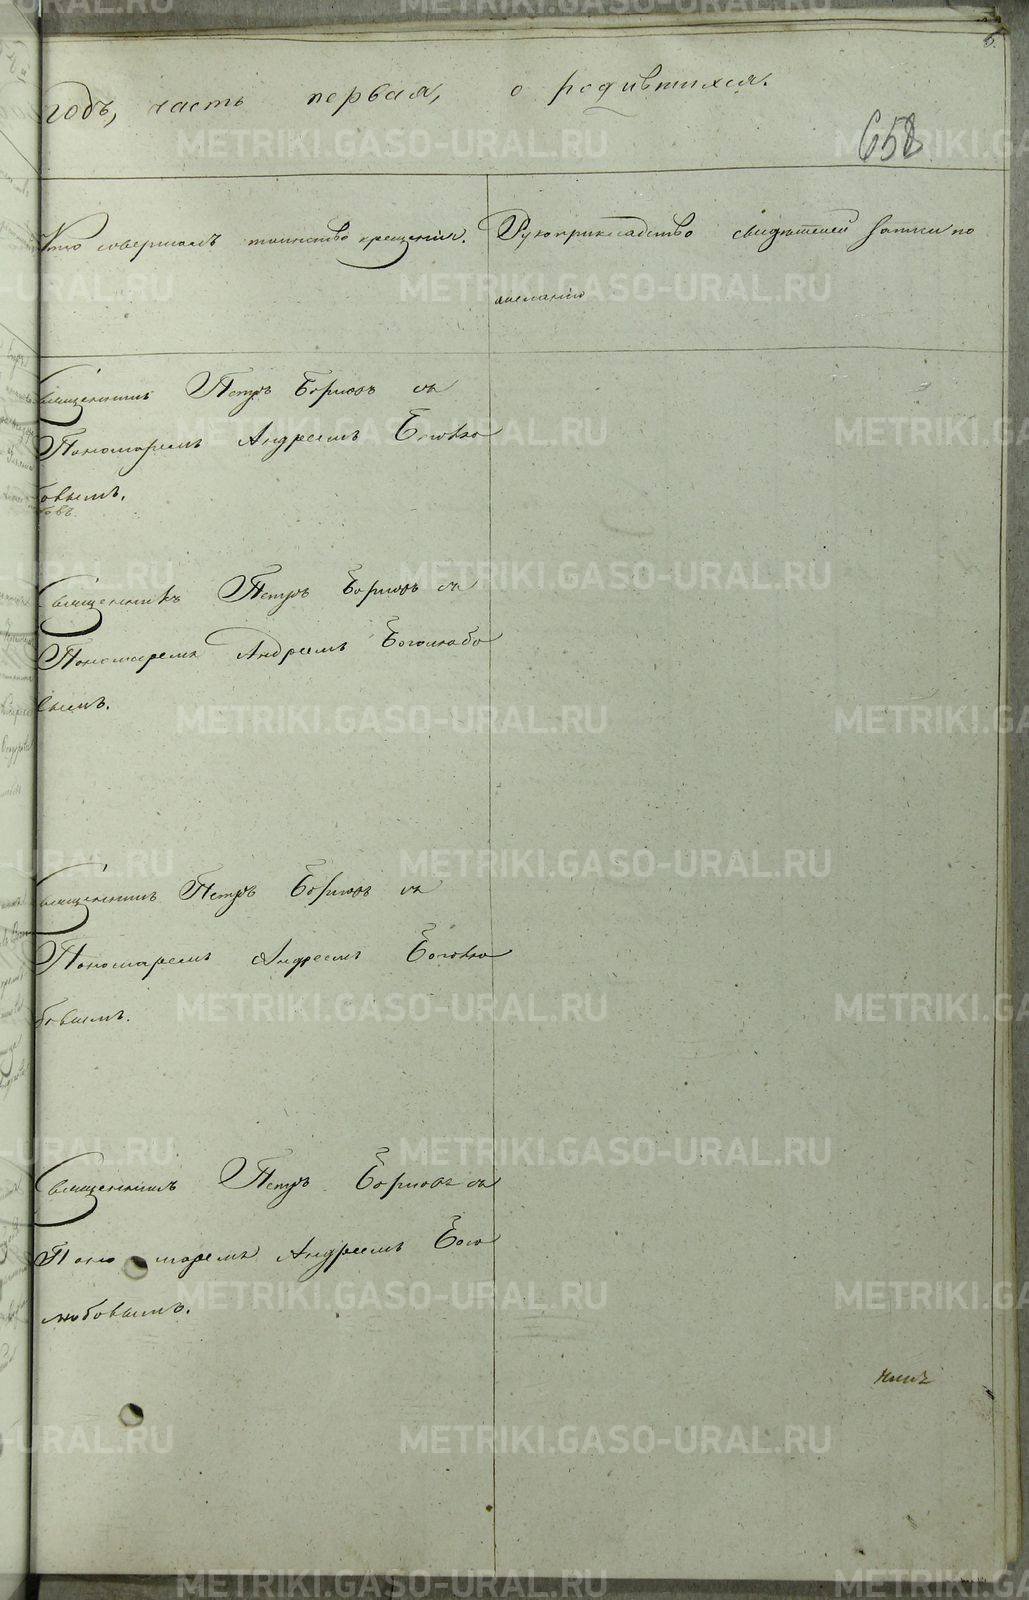 6.
годъ, часть первая, о родившихся.
658
Кто совершалъ таинство крещенія.
Рукоприкладство свидѣтелей записи по
желанію
Священникъ Петръ Борисовъ съ
Пономаремъ Андреемъ Боголю
бовымъ.
Священникъ Петръ Борисовъ съ
Пономаремъ Андреемъ Боголюбо
вымъ.
Священникъ Петръ Борисовъ съ
Пономаремъ Андреемъ Боголю
бовымъ.
Священникъ Петръ Борисовъ съ
Поно маремъ Андреемъ Бого
любовымъ.
METRIKI.GASO-URAL.RU